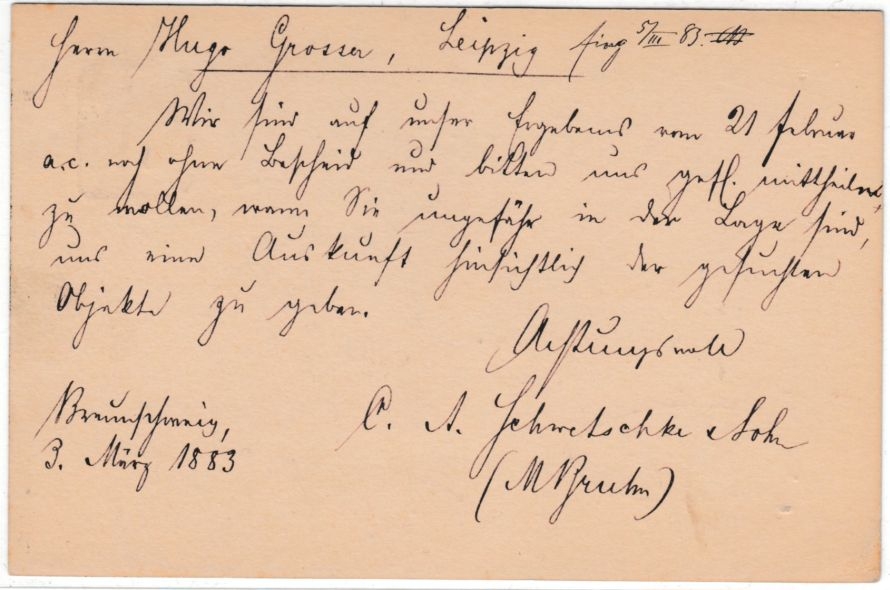 Herrn Hugo Grosser, Leipzig eing 5/III 83.
Wir sind auf unser Ergebenes vom 21 Februar
a.c. noch ohne Bescheid und bitten uns gefl. mittheilen
zu wollen, wann Sie ungefähr in der Lage sind,
uns eine Auskunft hinsichtlich der gesuchten
Objekte zu geben.
Achtungsvoll
Braunschweig,
3. März 1883
C. A. Schwetschke & Sohn
(M Bruhn)